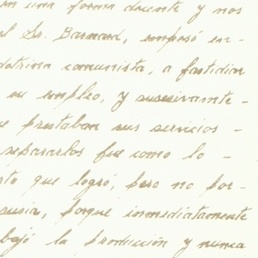 en una forma decente y nos
el Sr. Barnard, empesó en-
doctrina comunista, a fastidiar
su empleo, y susesivamente-
e prestaban sus servicios-
separarlos fue como lo-
sto que logró, pero no por-
ausia, porque inmediatamente
bajó la producción y nunca